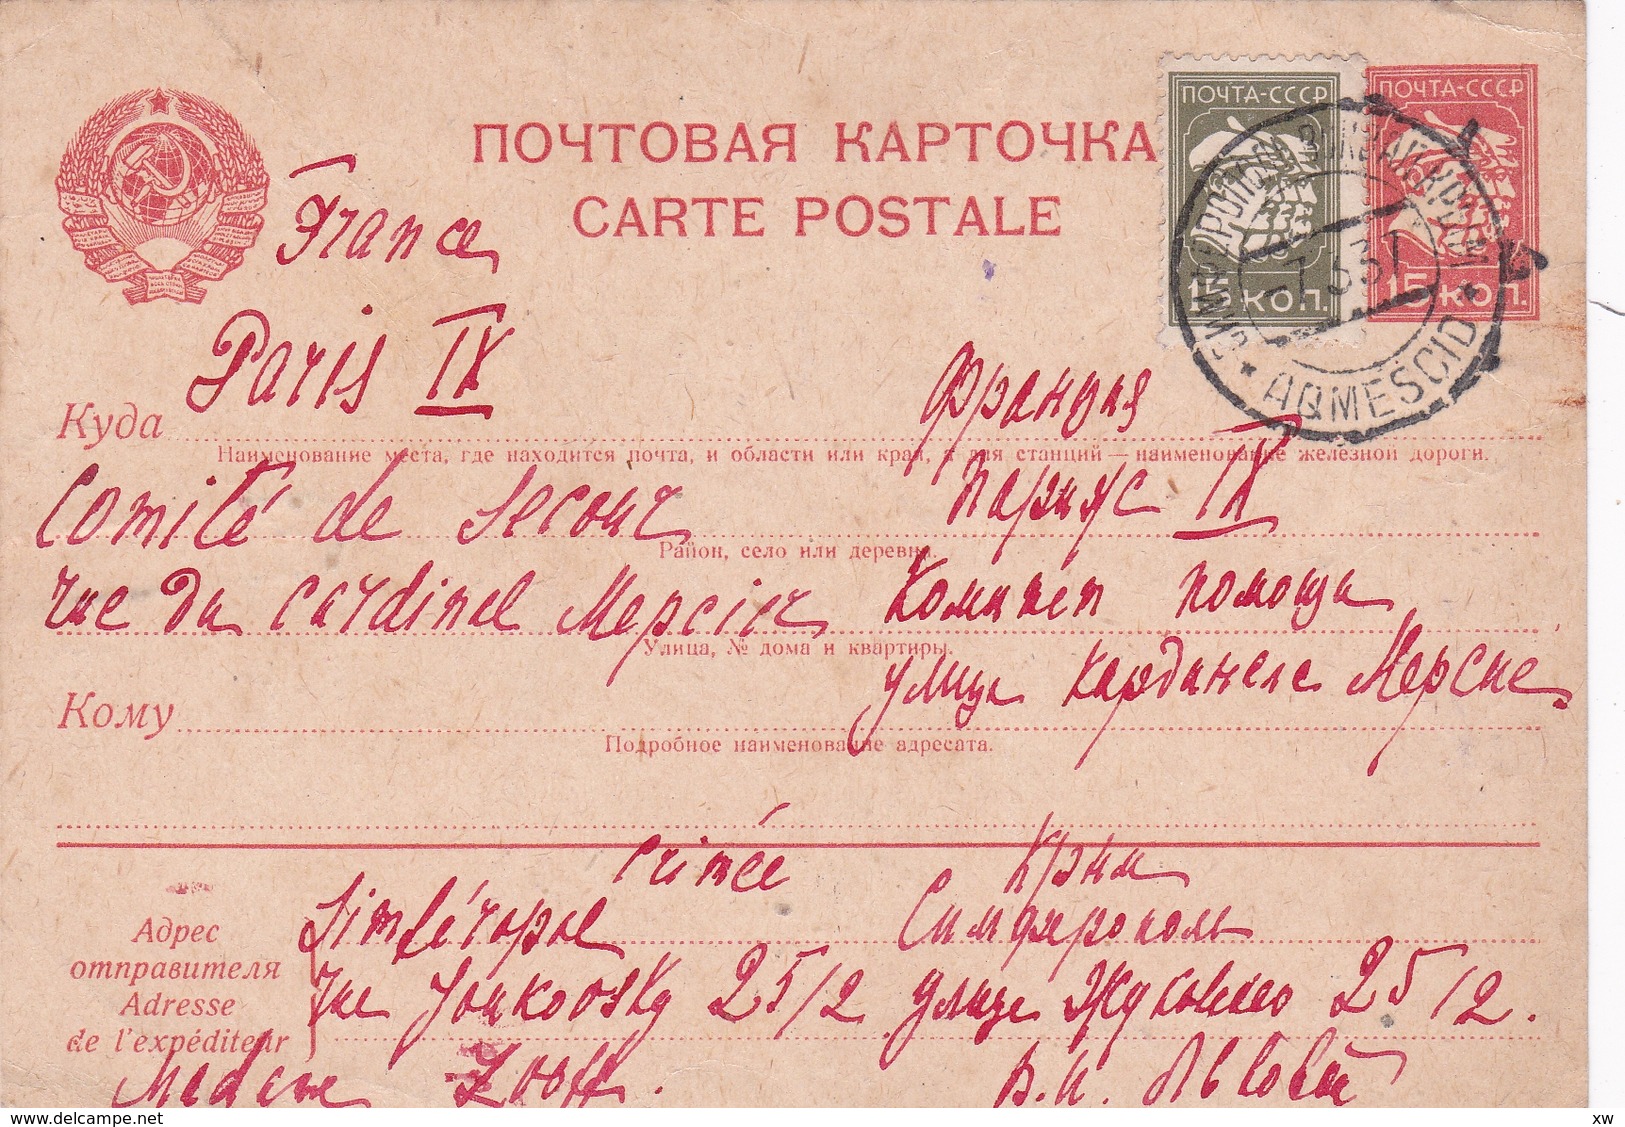 ПОЧТОВАЯ КАРТОЧКА
CARTE POSTALE
ПОЧТА-СССР
15 КОП.
ПОЧТА-СССР
15 КОП.
7 3 31
AQMESCID
France
Paris IX
Франция
Куда
Наименование места, где находится почта, и области или края, а для станций — наименование железной дороги.
Comité de Secour
Париж IX
Район, село или деревня.
rue du Cardinal Мерсier
Комитет помощи
Улица, № дома и квартиры.
улица Кардинела Мерсие
Кому
Подробное наименование адресата.
Crimée
Крым
Адрес отправителя
Adresse de l'expéditeur
Simféropol
Симферополь
rue Joukoosky 25/2
улица Жуковского 25/2.
Madame
В.И. Львовой
xw